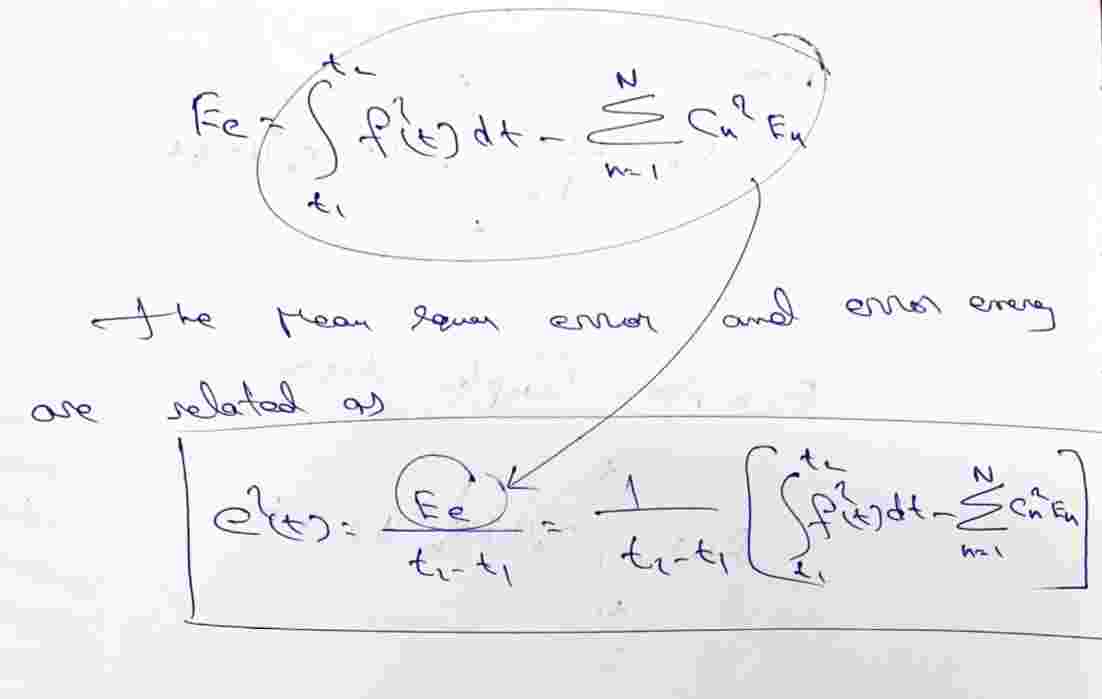 Ee = ∫_{t₁}^{t₂} f²(t) dt - Σ_{n=1}^{N} Cn² En
The Mean square error and error energy
are related as
e²(t) = Ee / (t₂ - t₁) = 1 / (t₂ - t₁) [ ∫_{t₁}^{t₂} f²(t) dt - Σ_{n=1}^{N} Cn² En ]